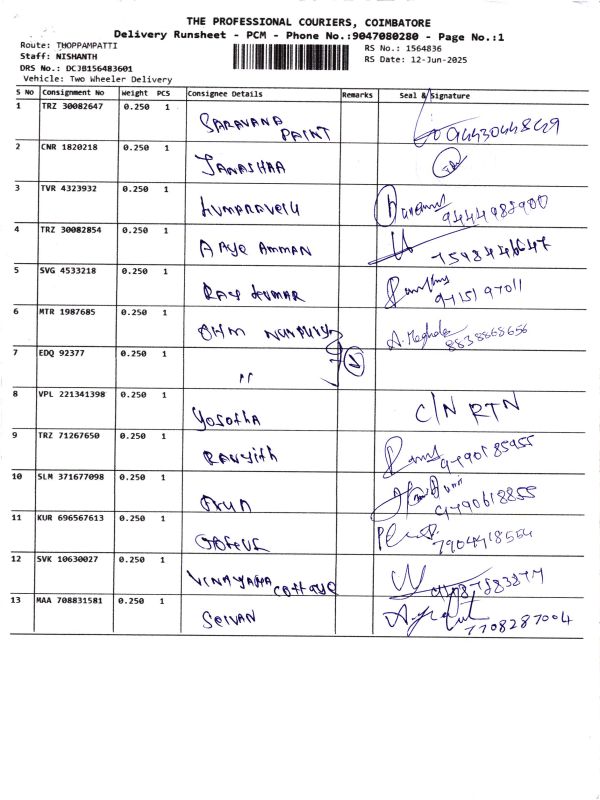 THE PROFESSIONAL COURIERS, COIMBATORE
Delivery Runsheet - PCM - Phone No.:9047080280 - Page No.:1
Route: THOPPAMPATTI
RS No.: 1564836
Staff: NISHANTH
RS Date: 12-Jun-2025
DRS No.: DCJB156483601
Vehicle: Two Wheeler Delivery
S No Consignment No Weight PCS Consignee Details Remarks Seal & Signature
1 TRZ 30082647 0.250 1 SARAVANA PAINT 9443044849
2 CNR 1820218 0.250 1 JANASHAA
3 TVR 4323932 0.250 1 9444988900
4 TRZ 30082854 0.250 1 A Aye AMMAN 7598446647
5 SVG 4533218 0.250 1 RAJ KUMAR 9715197011
6 MTR 1987685 0.250 1 OHM A. Meghala 8838868656
7 EDQ 92377 0.250 1 "
8 VPL 221341398 0.250 1 YOSOTHA C/N RTN
9 TRZ 71267650 0.250 1 RANJITH 9790185955
10 SLM 371677098 0.250 1 ARUN 9790618855
11 KUR 696567613 0.250 1 GOKUL 7904418554
12 SVK 10630027 0.250 1 VINAYAGA COTTAGE
13 MAA 708831581 0.250 1 SELVAN 7708287004